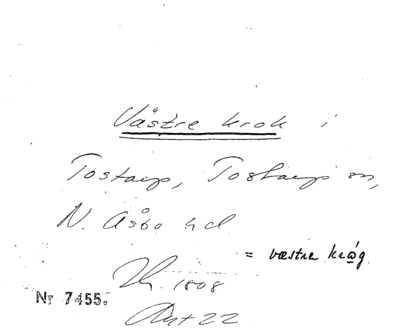 Västre krok i
Tostarp, Tostarps sn,
N. Åsbo hd
= væstre krøg
1808
Nr 7455.
Akt 22